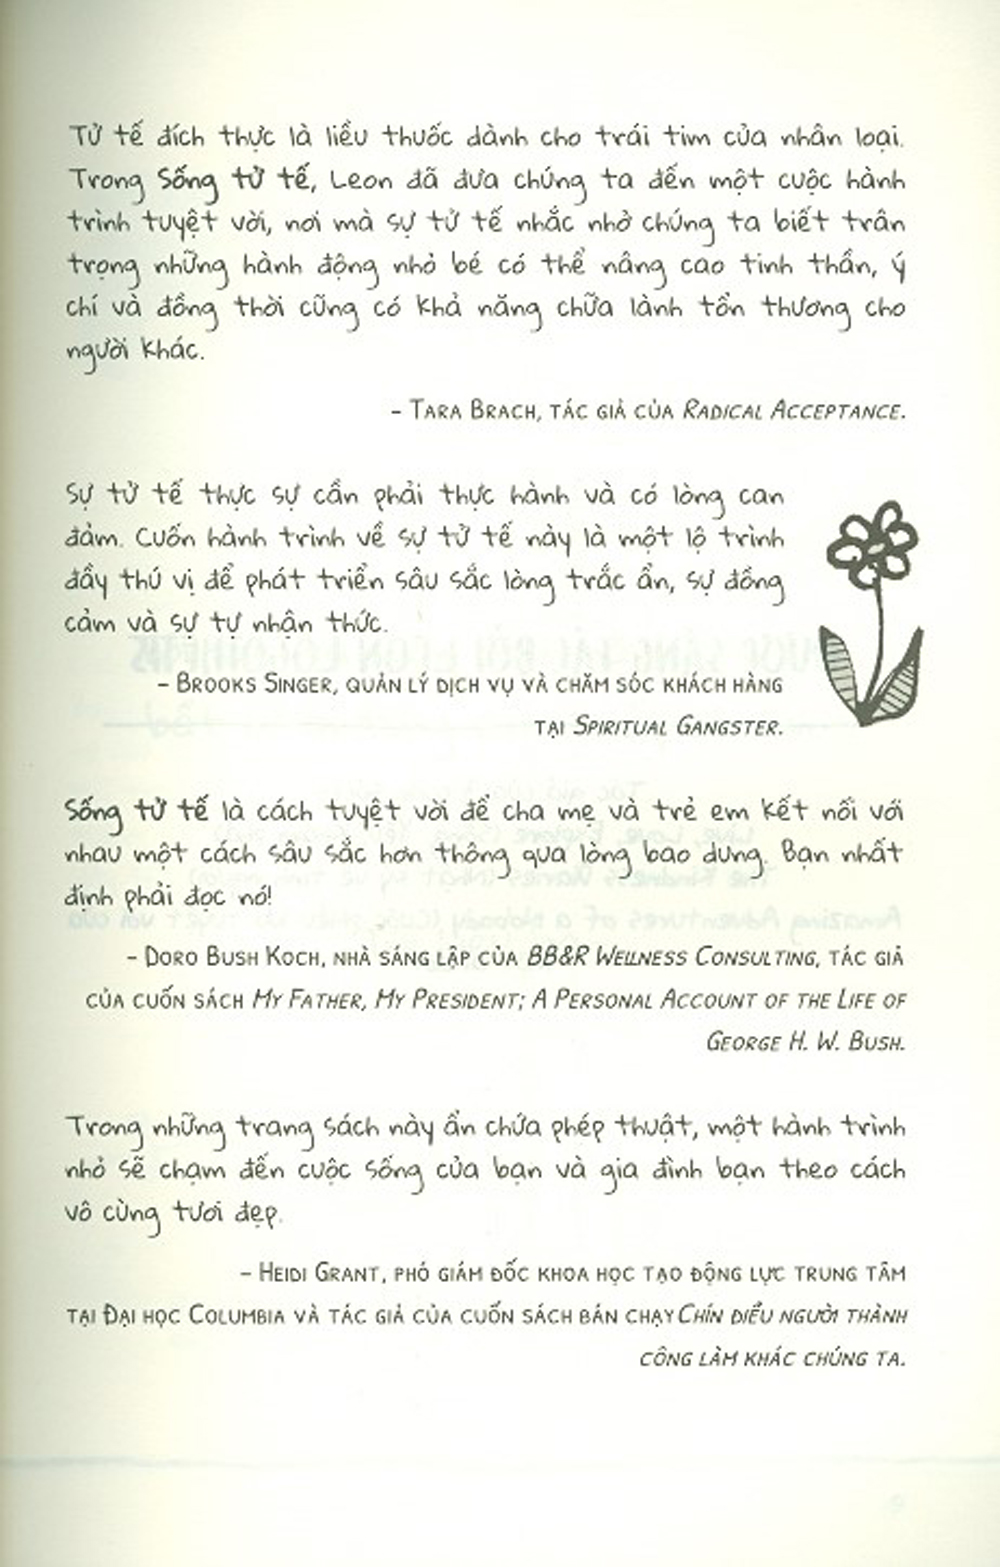 Tử tế đích thực là liều thuốc dành cho trái tim của nhân loại.
Trong Sống tử tế, Leon đã đưa chúng ta đến một cuộc hành
trình tuyệt vời, nơi mà sự tử tế nhắc nhở chúng ta biết trân
trọng những hành động nhỏ bé có thể nâng cao tinh thần, ý
chí và đồng thời cũng có khả năng chữa lành tổn thương cho
người khác.
– TARA BRACH, TÁC GIẢ CỦA RADICAL ACCEPTANCE.
Sự tử tế thực sự cần phải thực hành và có lòng can
đảm. Cuốn hành trình về sự tử tế này là một lộ trình
đầy thú vị để phát triển sâu sắc lòng trắc ẩn, sự đồng
cảm và sự tự nhận thức.
– BROOKS SINGER, QUẢN LÝ DỊCH VỤ VÀ CHĂM SÓC KHÁCH HÀNG
TẠI SPIRITUAL GANGSTER.
Sống tử tế là cách tuyệt vời để cha mẹ và trẻ em kết nối với
nhau một cách sâu sắc hơn thông qua lòng bao dung. Bạn nhất
định phải đọc nó!
– DORO BUSH KOCH, NHÀ SÁNG LẬP CỦA BB&R WELLNESS CONSULTING, TÁC GIẢ
CỦA CUỐN SÁCH MY FATHER, MY PRESIDENT; A PERSONAL ACCOUNT OF THE LIFE OF
GEORGE H. W. BUSH.
Trong những trang sách này ẩn chứa phép thuật, một hành trình
nhỏ sẽ chạm đến cuộc sống của bạn và gia đình bạn theo cách
vô cùng tươi đẹp.
– HEIDI GRANT, PHÓ GIÁM ĐỐC KHOA HỌC TẠO ĐỘNG LỰC TRUNG TÂM
TẠI ĐẠI HỌC COLUMBIA VÀ TÁC GIẢ CỦA CUỐN SÁCH BÁN CHẠY CHÍN ĐIỀU NGƯỜI THÀNH
CÔNG LÀM KHÁC CHÚNG TA.